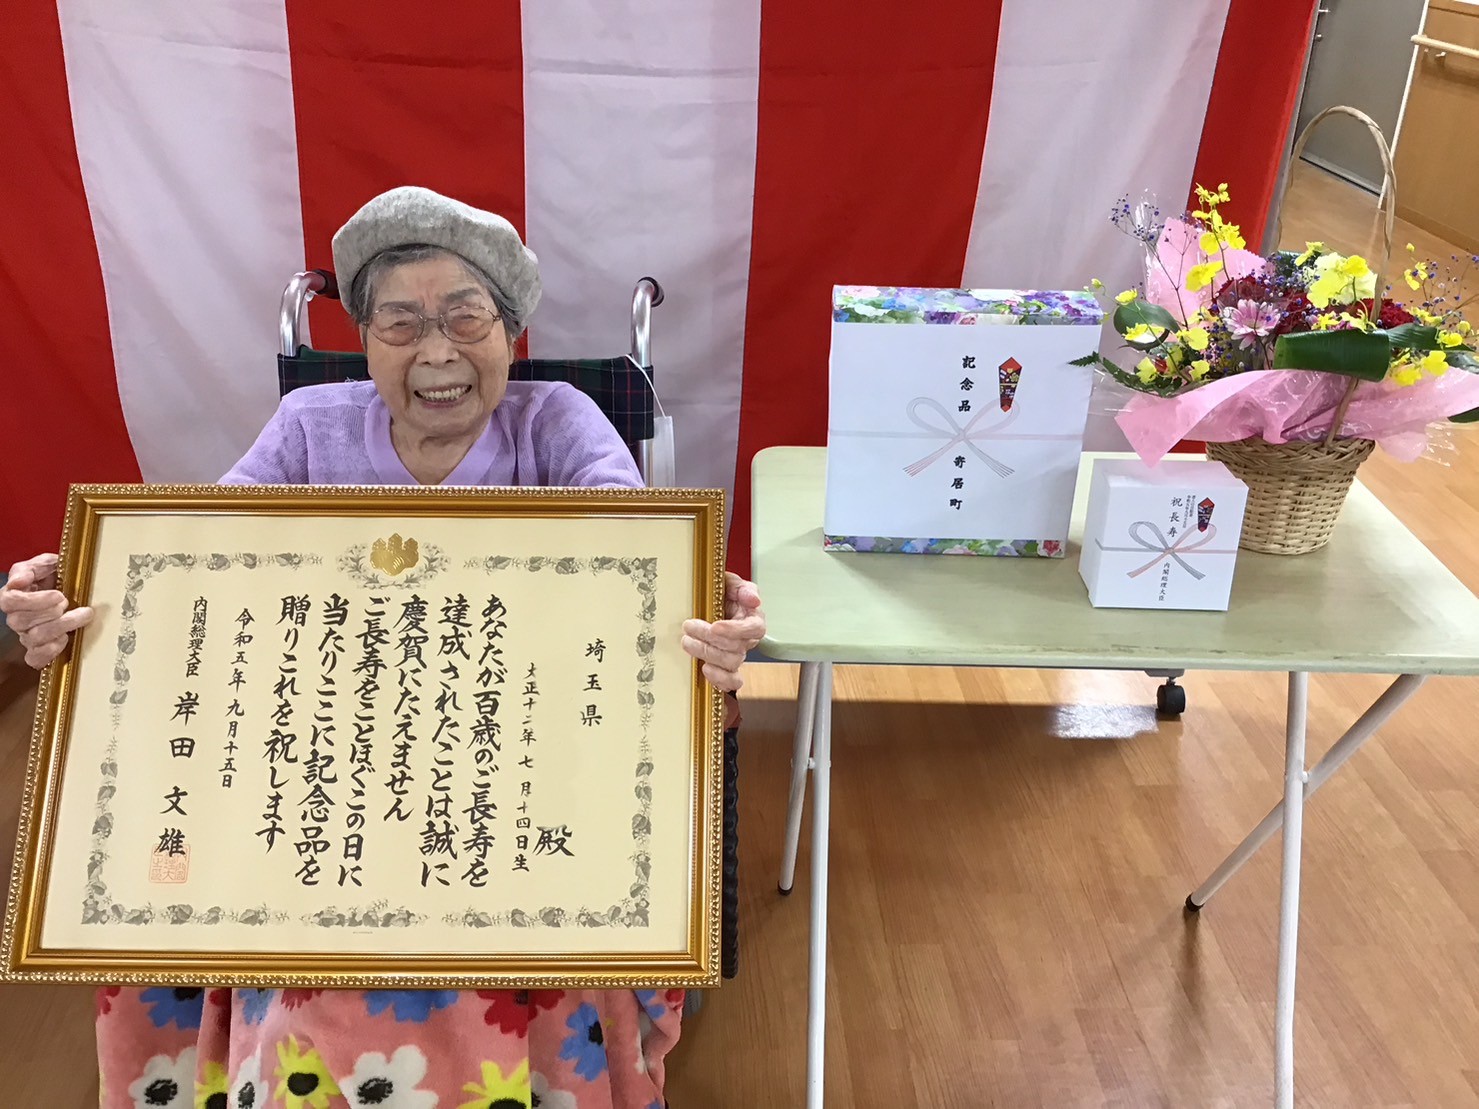 埼玉県
殿
大正十二年七月十四日生
あなたが百歳のご長寿を
達成されたことは誠に
慶賀にたえません
ご長寿をことほぐこの日に
当たりここに記念品を
贈りこれを祝します
令和五年九月十五日
内閣総理大臣 岸田文雄
記念品 寄居町
祝長寿
内閣総理大臣